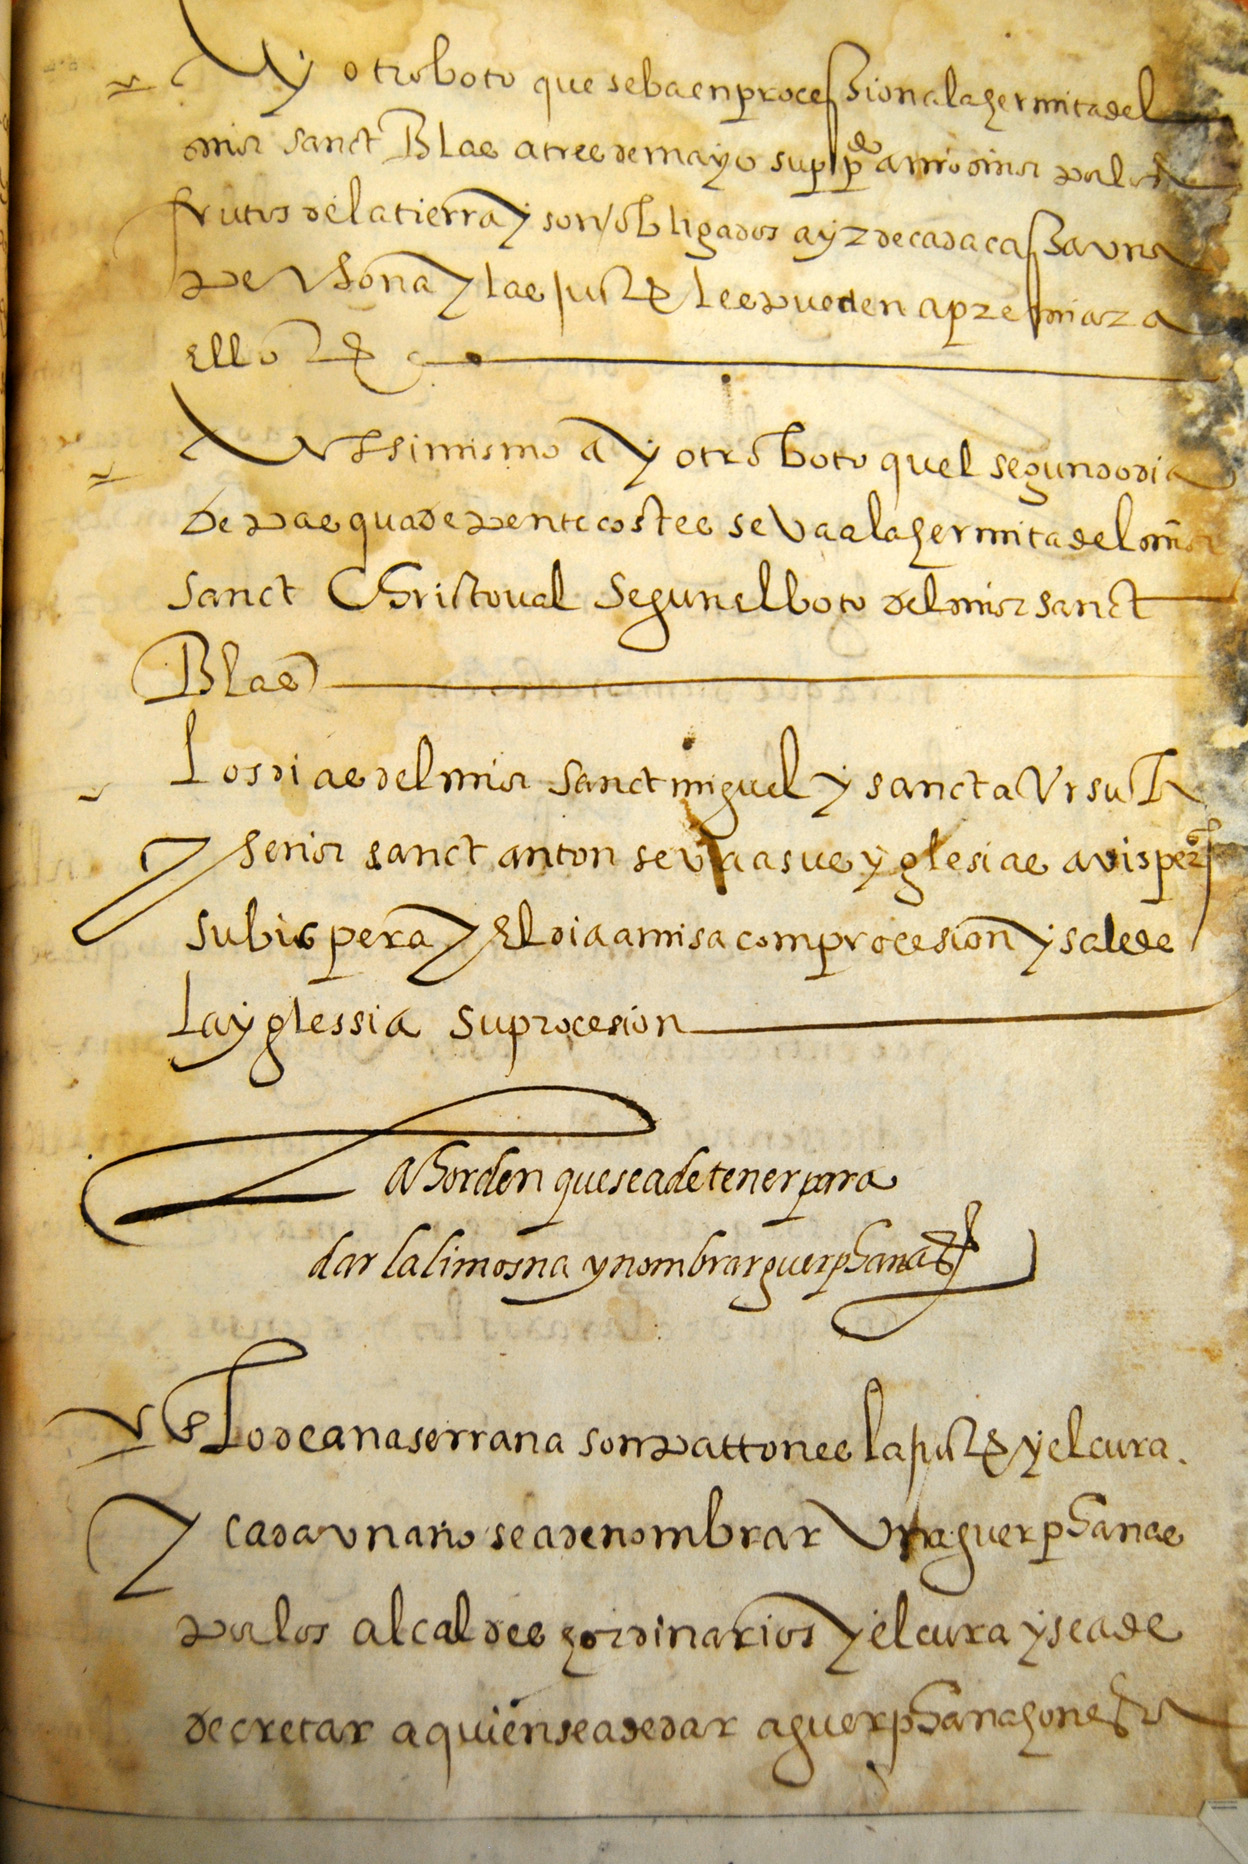 Ay otro boto que se ba en procession a la hermita del
señor sanct Blas a tres de mayo supp^do a nro señor por los
frutos de la tierra y son obligados a yr de cada cassa una
persona y las jusª les pueden apremiar a
ello
Assimismo ay otro boto quel segundo dia
de pasqua de pentecostes se va a la hermita del señor
sanct Christoval segun el boto del señor sanct
Blas
Los dias del señor sanct miguel y sancta Ursula
y señor sanct anton se va a sus yglesias a visperas
su bispera y el dia a misa com procesion y sale de
la yglessia su procesion
La horden que se a de tener para
dar la limosna y nombrar guerphanas
Lo de ana serrana son pattones la jusª y el cura.
y cada un año se a de nombrar una guerphanas
por los alcaldes hordinarios y el cura y se a de
decretar a quien se a de dar a guerphana honesta